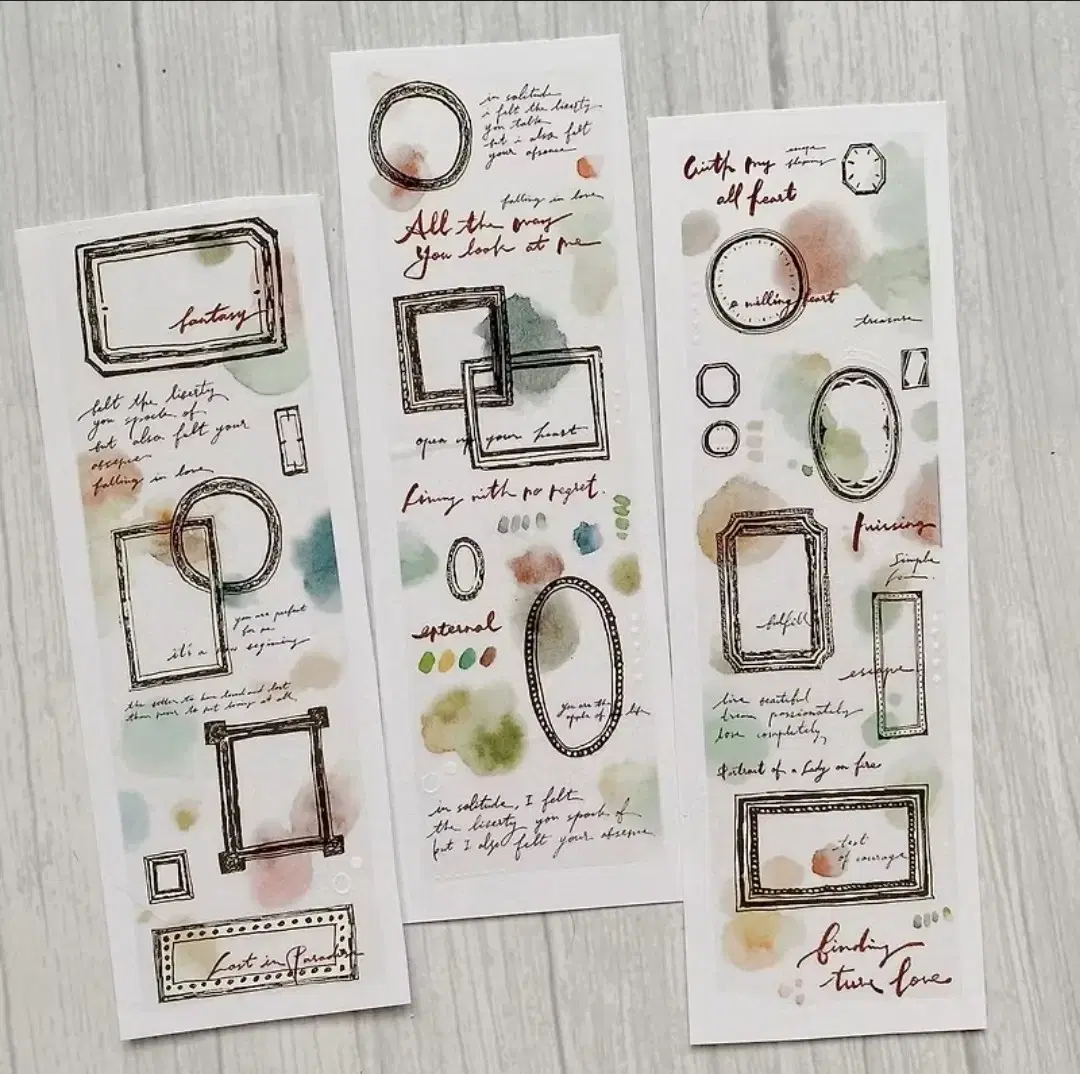 fantasy
felt the liberty
you spoke of
but also felt your
absence
falling in love
you are perfect
for me
it's a new begining
than never to not loving at all
Lost in Paradise
in solitude
i felt the liberty
you talk
but i also felt
your absence
falling in love
All the way
You look at me
open up your heart
Living with no regret.
external
you are the
apple of life
in solitude, I felt
the liberty you spoke of
but I also felt your absence
with my
all heart
a willing heart
treasure
missing
simple
fulfill
escape
live beautiful
dream passionately
love completely
Portrait of a lady on fire
test
of courage
finding
ture love